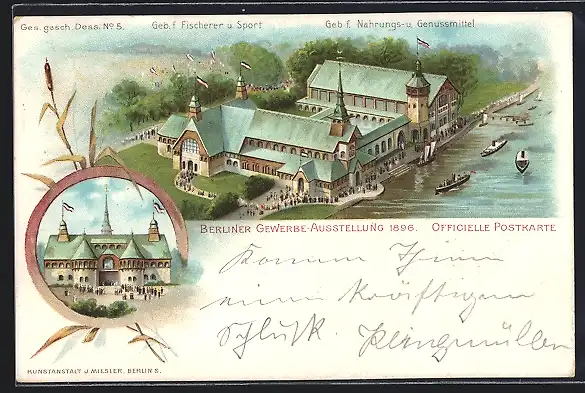 Ges. gesch. Dess. No 5.
Geb. f. Fischerei u. Sport
Geb f. Nahrungs- u. Genussmittel
BERLINER GEWERBE-AUSSTELLUNG 1896. OFFICIELLE POSTKARTE
einen kräftigen
Schluck.
KUNSTANSTALT J. MIESLER, BERLIN S.